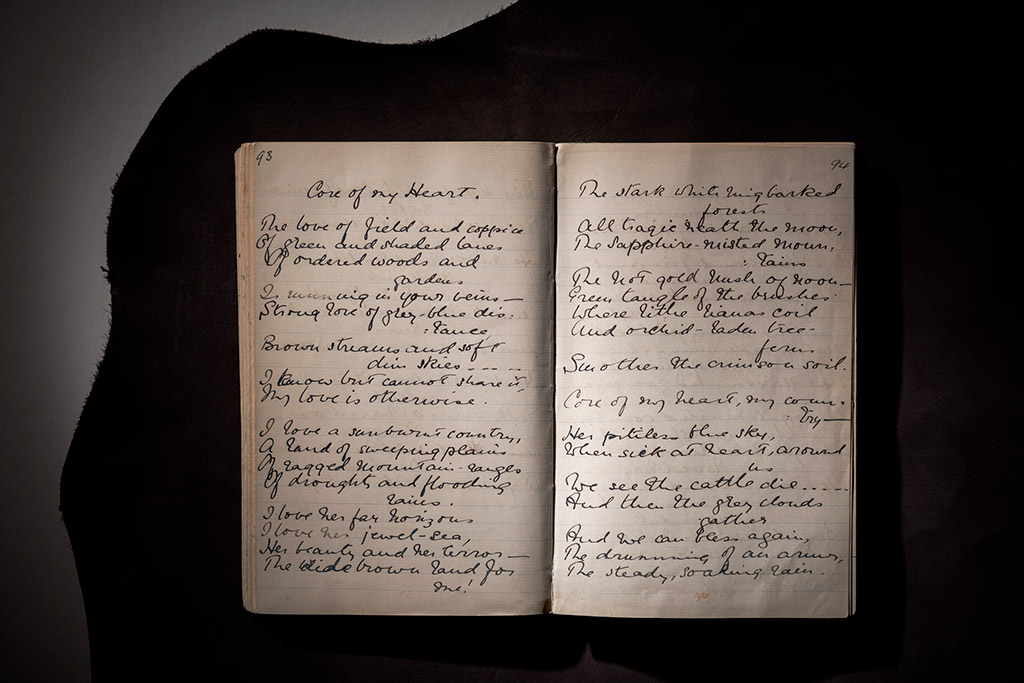 93
Core of my Heart.
The love of field and coppice
Of green and shaded lanes
Of ordered woods and
gardens
Is running in your veins—
Strong love of grey-blue dis:
:tance
Brown streams and soft
dim skies - - - -
I know but cannot share it,
My love is otherwise.
I love a sunburnt country,
A land of sweeping plains
Of ragged mountain-ranges
Of droughts and flooding
rains.
I love her far horizons
I love her jewel-sea,
Her beauty and her terror—
The wide brown land for
me!
94
The stark white ringbarked
forests
All tragic 'neath the moon,
The sapphire-misted moun:
:tains
The hot gold hush of noon—
Green tangle of the brushes
Where lithe lianas coil
And orchid-laden tree-
ferns
Smother the crimson soil.
Core of my heart, my coun:
:try—
Her pitiless blue sky,
When sick at heart, around
us
We see the cattle die - - - - -
And then the grey clouds
gather
And we can bless again,
The drumming of an army,
The steady, soaking rain.